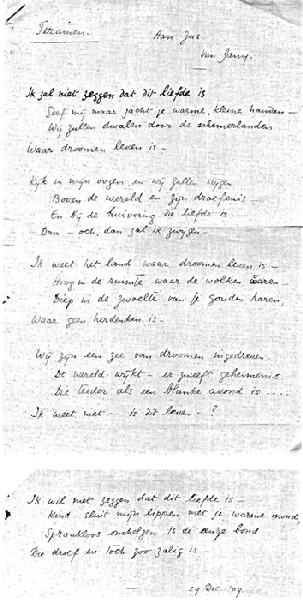 Tetrainen.
Aan Jus
van Jenny.
Ik zal niet zeggen dat dit liefde is
Geef mij maar zacht je warme, kleine handen –
Wij zullen dwalen door de schemerlanden
Waar droomen leven is –
Kijk in mijn oogen, en wij zullen stijgen
Boven de wereld en zijn droefenis
En bij de huivering die liefde is
Dan – och, dan zal ik zwijgen –
Ik weet het land waar droomen leven is –
Hoog in de ruimte waar de wolken waren
Diep in de zwoelte van je gouden haren,
Waar geen herdenken is –
Wij zijn een zee van droomen ingedreven
De wereld wijkt – er zweeft geheimenis
Die teeder als een blanke avond is ....
Ik weet niet – is dit leven – ?
Ik wil niet zeggen dat dit liefde is –
Kind, sluit mijn lippen met je warme mond
Sprakeloos omhelzen is de eenge bond
Die droef en toch zoo zalig is
29 Dec. '09